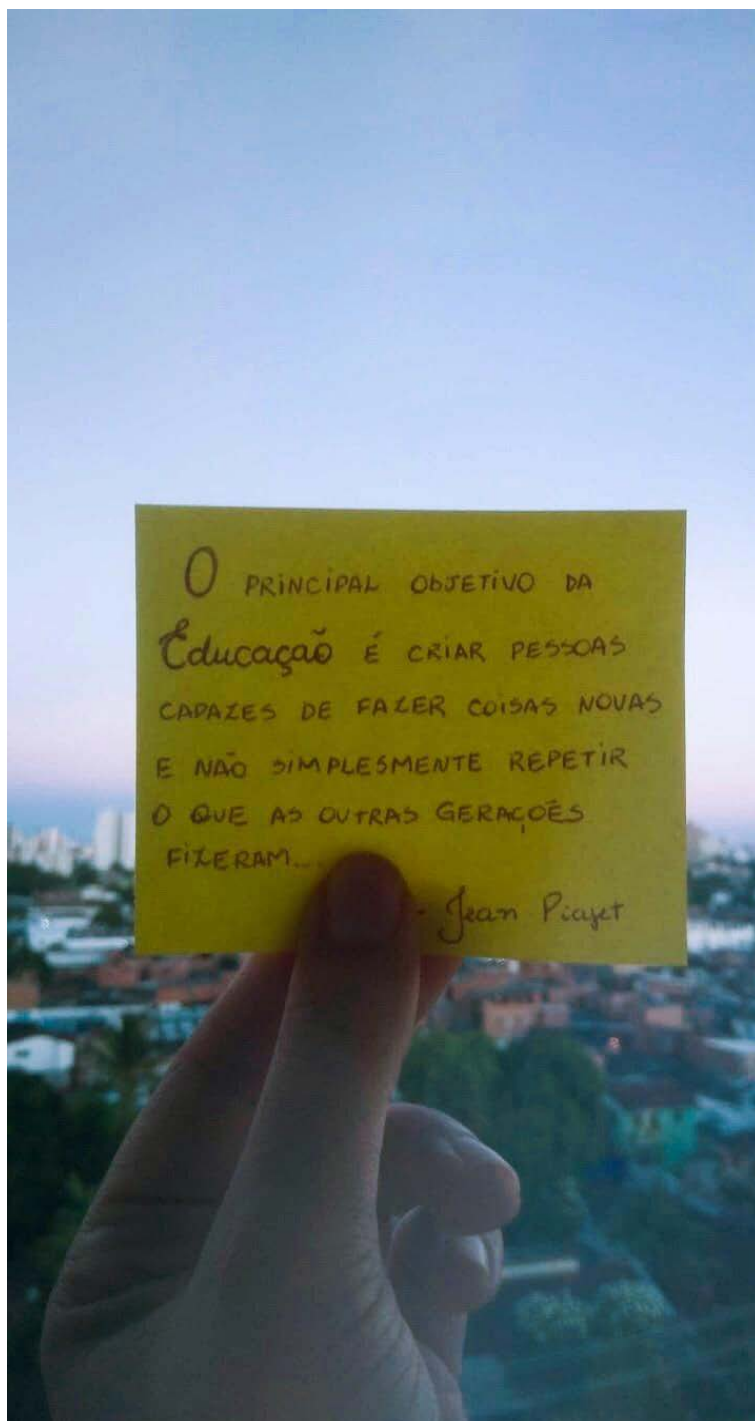 O PRINCIPAL OBJETIVO DA
Educação É CRIAR PESSOAS
CAPAZES DE FAZER COISAS NOVAS
E NÃO SIMPLESMENTE REPETIR
O QUE AS OUTRAS GERAÇÕES
FIZERAM...
- Jean Piaget